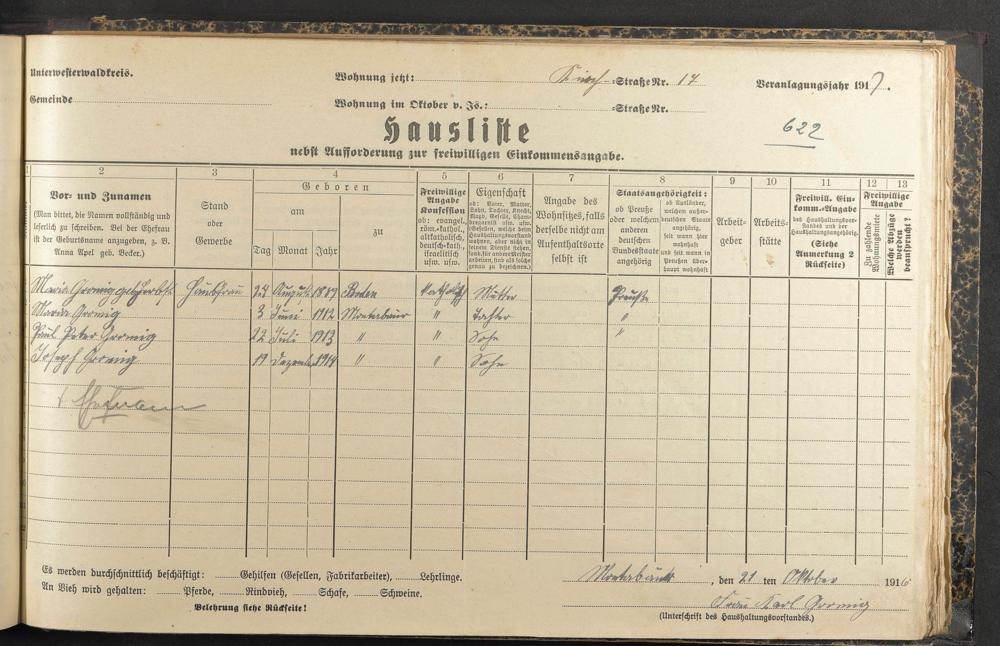 Unterwesterwaldkreis.
Wohnung jetzt: Kirch-Straße Nr. 14
Veranlagungsjahr 1917.
Gemeinde
Wohnung im Oktober v. Js.: -Straße Nr.
622
Hausliste
nebst Aufforderung zur freiwilligen Einkommensangabe.
1 2 3 4 5 6 7 8 9 10 11 12 13
Vor- und Zunamen
(Man bittet, die Namen vollständig und
leserlich zu schreiben. Bei der Ehefrau
ist der Geburtsname anzugeben, z. B.
Anna Apel geb. Becker.)
Stand
oder
Gewerbe
Geboren
am
Tag Monat Jahr
zu
Freiwillige
Angabe
Konfession
ob: evangel.,
röm.-kathol.,
altkatholisch,
deutsch-kath.,
israelitisch
usw. usw.
Eigenschaft
ob: Vater, Mutter,
Sohn, Tochter, Knecht,
Magd, Geselle, Cham-
bregarnist usw. usw.
(Gesellen, welche beim
Haushaltungsvorstand
wohnen, aber nicht in
seinem Dienste stehen,
sond. für andere Meister
arbeiten, sind als solche
genau zu bezeichnen.)
Angabe des
Wohnsitzes, falls
derselbe nicht am
Aufenthaltsorte
selbst ist
Staatsangehörigkeit:
ob Preuße
oder welchem
anderen
deutschen
Bundesstaate
angehörig
ob Ausländer,
welchem außer-
deutschen Staate
angehörig,
seit wann hier
wohnhaft
und seit wann in
Preußen über-
haupt wohnhaft
Arbeit-
geber
Arbeits-
stätte
Freiwill. Ein-
komm.-Angabe
des Haushaltungsvor-
standes und der
Haushaltungsangehörig.
(Siehe
Anmerkung 2
Rückseite)
Freiwillige
Angabe
Zu zahlende
Wohnungsmiete
Welche Abzüge
werden
beansprucht?
Maria Gromig geb. Hausfrau August 1889 Boden kathol. Mutter Preuße
Maria Gromig 3 Juni 1912 Montabaur " Tochter "
Paul Peter Gromig 22 Juli 1913 " " Sohn "
Joseph Gromig 19 Dezember 1914 " " Sohn
Es werden durchschnittlich beschäftigt: Gehilfen (Gesellen, Fabrikarbeiter), Lehrlinge.
An Vieh wird gehalten: Pferde, Rindvieh, Schafe, Schweine.
Belehrung siehe Rückseite!
Montabaur, den 21 ten Oktober 1916
Frau Karl Gromig
(Unterschrift des Haushaltungsvorstandes.)